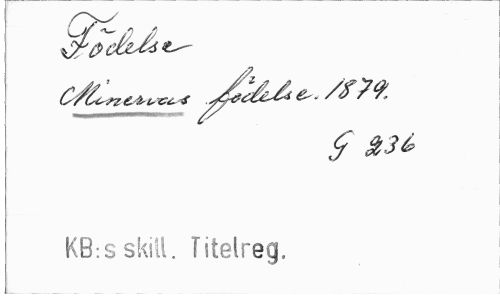 Födelse
Minervas födelse. 1879.
G 236
KB:s skill. Titelreg.